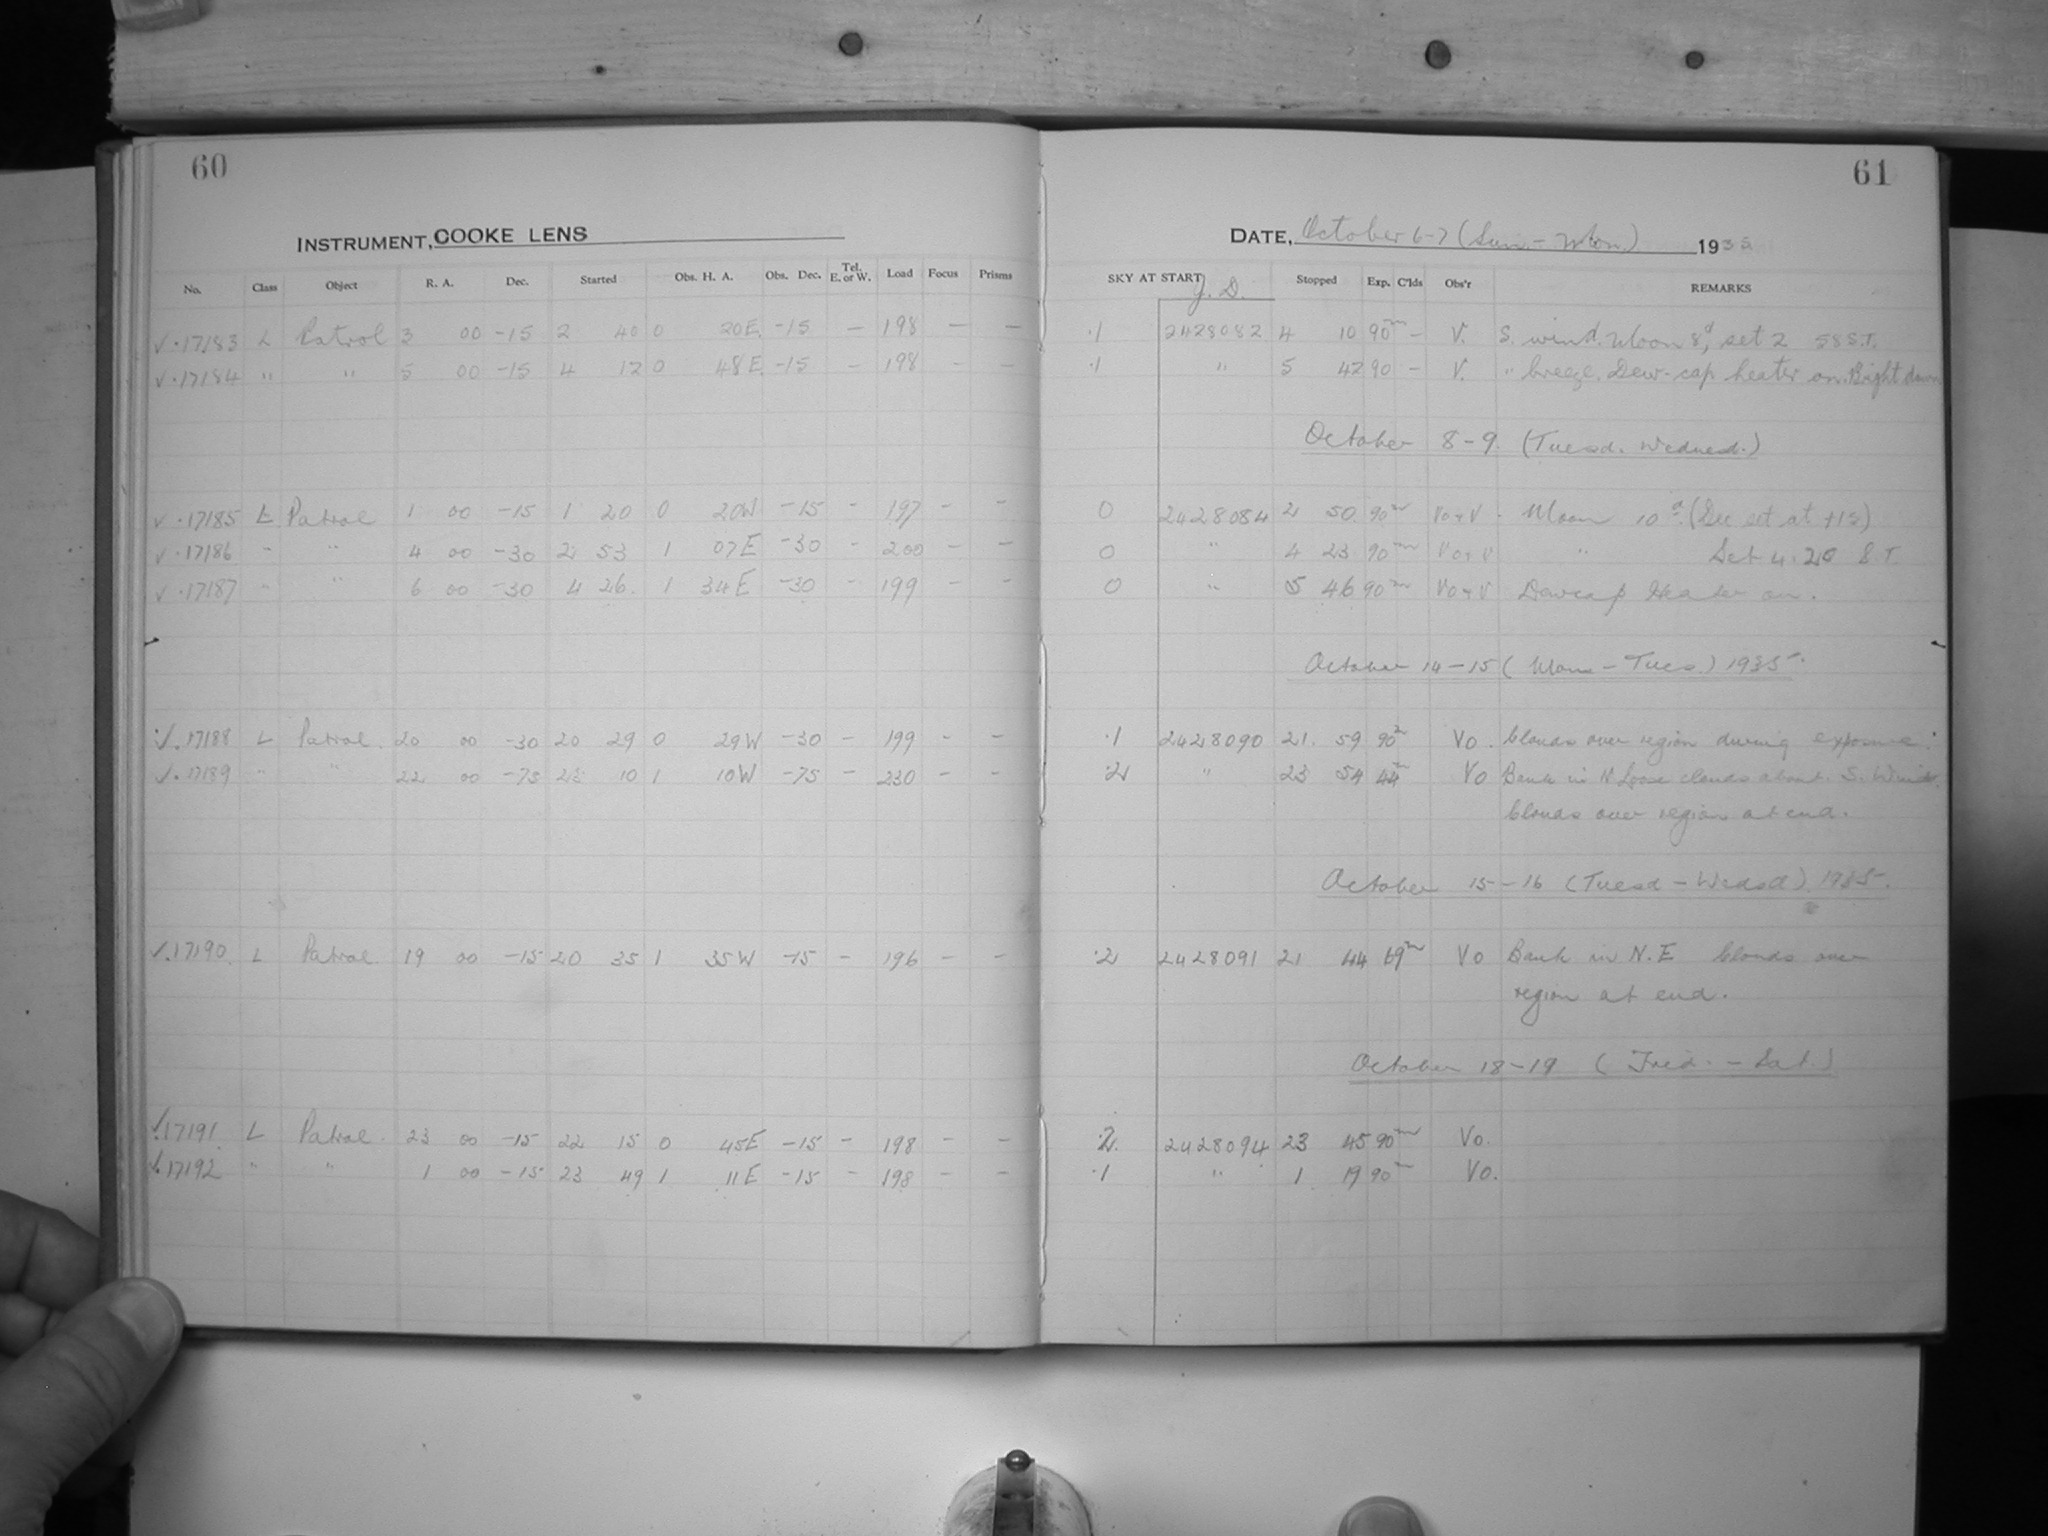 60
INSTRUMENT, COOKE LENS
No. Class Object R. A. Dec. Started Obs. H. A. Obs. Dec. Tel. E. or W. Load Focus Prisms
✓·17183 L Patrol 3 00 -15 2 40 0 20E. -15 — 198 — —
✓·17184 " " 5 00 -15 4 12 0 48E. -15 — 198 — —
✓·17185 L Patrol 1 00 -15 1 20 0 20W -15 - 197 - -
✓·17186 " " 4 00 -30 2 53 1 07E -30 - 200 - -
✓·17187 " " 6 00 -30 4 26. 1 34E -30 - 199 - -
✓.17188 L Patrol. 20 00 -30 20 29 0 29W -30 - 199 - -
✓.17189 " " 22 00 -75 23 10 1 10W -75 - 230 - -
✓.17190. L Patrol 19 00 -15 20 35 1 35W -15 - 196 - -
✓17191. L Patrol. 23 00 -15 22 15 0 45E -15 - 198 - -
✓17192 " " 1 00 -15 23 49 1 11E -15 - 198 - -
61
DATE, October 6-7 (Sun. - Mon.) 1935
SKY AT START J. D. Stopped Exp. C'lds Obs'r REMARKS
·1 2428082 4 10 90m - V. S. wind. Moon 8d, set 2 58 S.T.
·1 " 5 42 90 - V. " breeze. Dew-cap heater on. Bright dawn
October 8-9. (Tuesd. Wednesd.)
0 2428084 2 50 90m Vo+V - Moon 10d. (Dec set at +15)
0 " 4 23 90m Vo+V " Set 4.20 S.T.
0 " 5 46 90m Vo+V Dewcap Heater on.
October 14-15 (Mon - Tues.) 1935.
·1 2428090 21. 59 90m Vo. Clouds over region during exposure.
·2 " 23 54 44m Vo Bank in N Loose clouds about. S. Wind.
Clouds over region at end.
October 15-16 (Tuesd - Wedsd) 1935.
·2 2428091 21 44 69m Vo Bank in N.E Clouds over
region at end.
October 18-19 (Frid. - Sat.)
·2. 2428094 23 45 90m Vo.
·1 " 1 19 90m Vo.